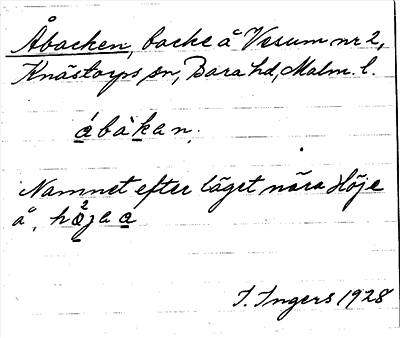 Åbacken, backe å Vesum nr 2,
Knästorps sn, Bara hd, Malm. l.
ábàkan.
Namnet efter läget nära Höje
å, hö²ja a
I. Ingers 1928